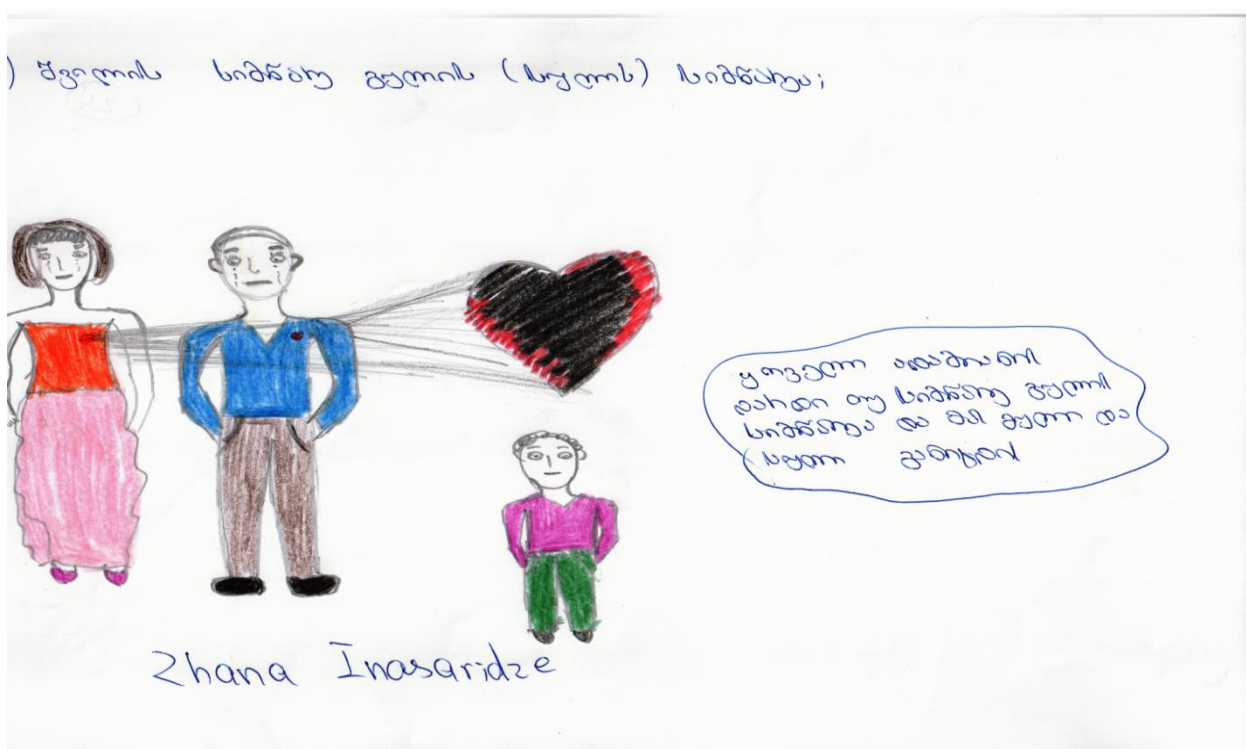 ) შვილის სიმწარე გულის (სულის) სიმწარეა;
ყოველი ადამიანი
დარდი თუ სიმწარე გულის
სიმწარეა და მას გული და
სული
Zhana Inasaridze